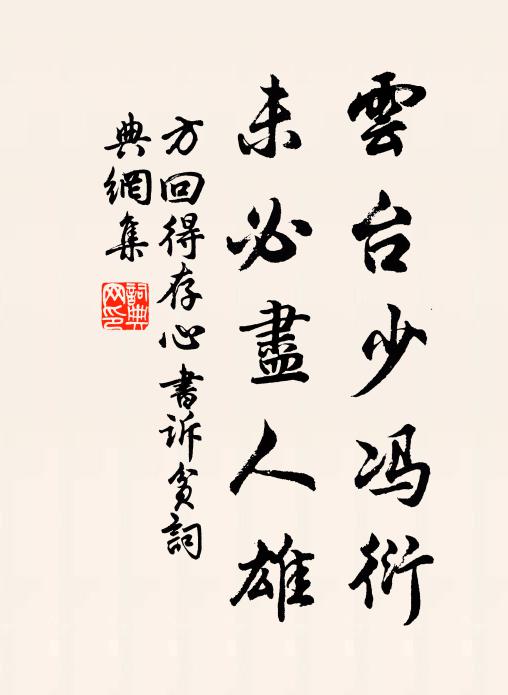 雲台少冯衍
未必盡人雄
方回得存心書诉貧詞
典網集
詞典网印